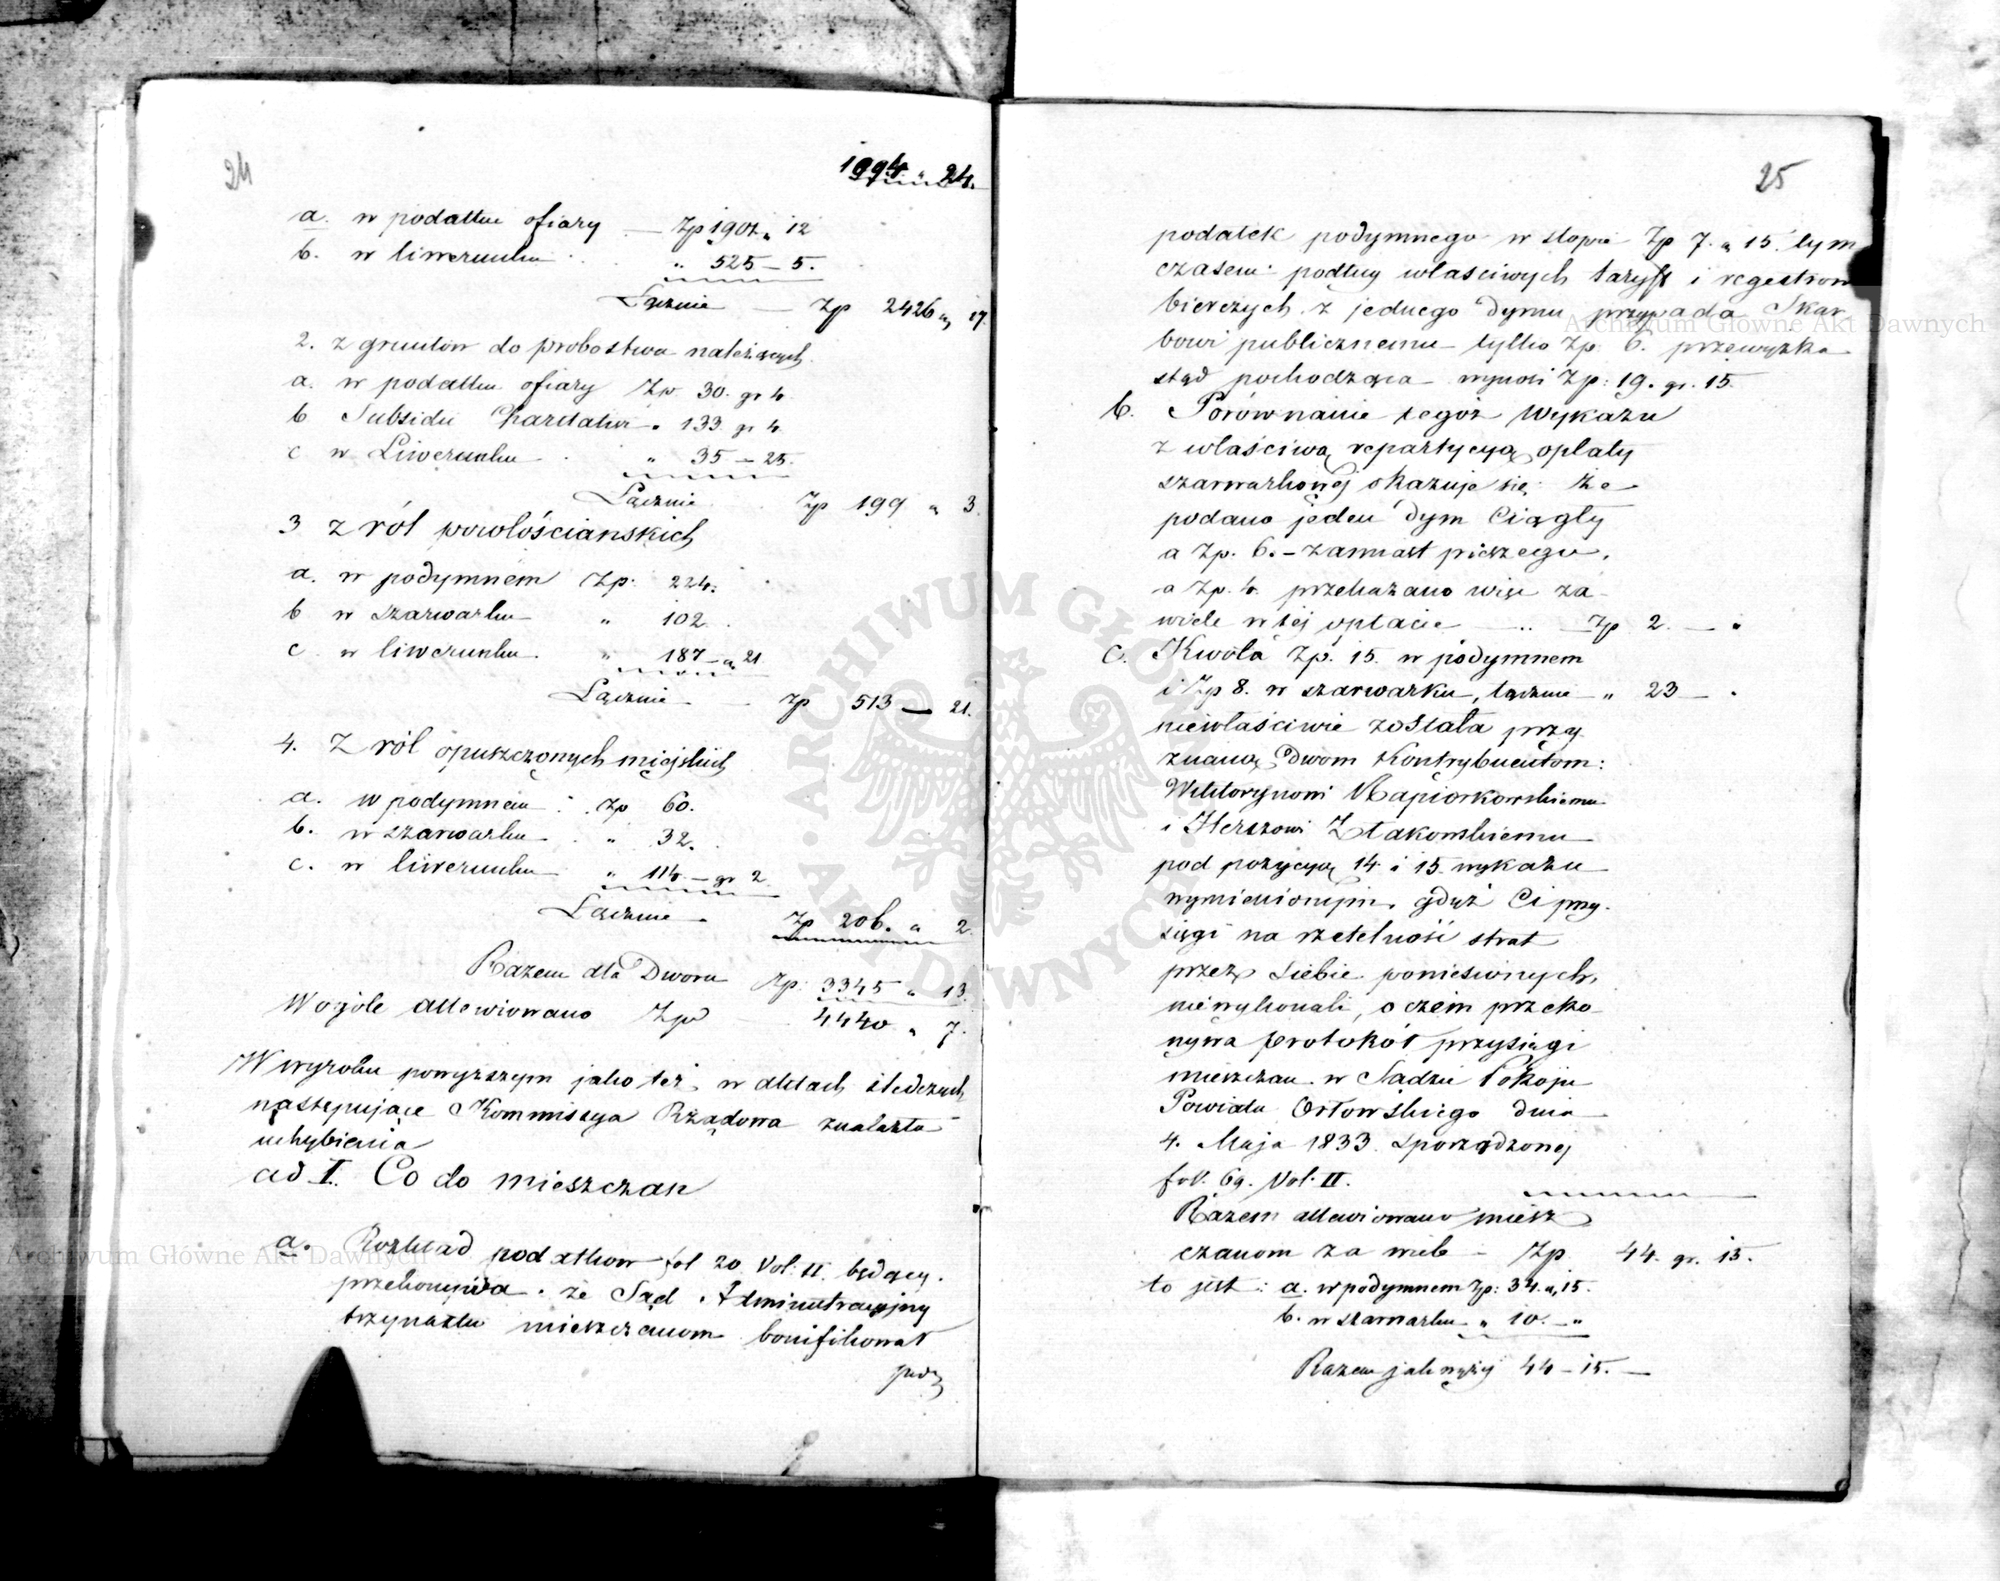 24
1094 „ 24.
a. w podatku ofiary — Zp 1901 „ 12
b. w liwerunku . . „ 525 – 5.
Łącznie — Zp 2426 „ 17.
2. z gruntów do probostwa należących.
a. w podatku ofiary Zp 30. gr 4.
b Subsidii Charitativi „ 133. gr 4.
c w Liwerunku . „ 35 – 25.
Łącznie . Zp 199 „ 3.
3 z ról powłościańskich
a. w podymnem Zp. 224.
b w szarwarku „ 102.
c. w liwerunku. „ 187 – „ 21
Łącznie — Zp 513 — 21.
4. Z ról opuszczonych miejskich
a. w podymnem . Zp 60.
b. w szarwarku . „ 32.
c. w liwerunku „ 114. – gr 2.
Łącznie . Zp 206. „ 2.
Razem dla Dworu Zp. 3345 „ 13.
Wogóle allewiowano Zp — 4440 „ 7.
W wyroku powyższym jako też w aktach śledczych
następujące Kommissya Rządowa znalazła
uchybienia
ad I. Co do mieszczan
a. Rozkład podatków fol 20 Vol: II. będący.
przekonywa że Sąd Administracyjny
trzynastu mieszczanom bonifikował
podz
25
podatek podymnego w stopie Zp 7. „ 15. tym
czasem podług właściwych taryff i regestrow
bierczych z jednego dymu przypada Skar
bowi publicznemu tylko Zp. 6. przewyżka
stąd pochodząca wynosi Zp: 19. gr. 15.
b. Porównanie tegoż Wykazu
z właściwą repartycyą opłaty
szarwarkowej okazuje się że
podano jeden dym Ciągły
a Zp. 6. – zamiast pieszego.
a Zp. 4. przekazano więc za
wiele w tej opłacie — .. — Zp 2. — „
c. Kwota Zp. 15. w podymnem
i Zp 8. w szarwarku, łącznie „ 23 — .
niewłaściwie została przy
znaną Dwom Kontrybuentom:
Wiktorynowi Kapiorkowskiemu
i Herszowi Złakowskiemu
pod pozycyą 14. i 15. wykazu
wymienionym, gdyż Ci przy.
sięgi na rzetelność strat
przez siebie poniesionych,
niewykonali, o czem przeko
nywa protokół przysięgi
mieszczan w Sądzie Pokoju
Powiatu Orłowskiego dnia
4. Maja 1833. sporządzonej
fol. 69. Vol. II.
Razem allewiowano miesz
czanom za wiele – Zp. 44. gr. 15.
to jest: a. w podymnem Zp: 34. „ 15.
b. w szarwarku „ 10. – „
Razem jak wyżej 44 – 15. —
Archiwum Główne Akt Dawnych
Archiwum Główne Akt Dawnych
ARCHIWUM GŁÓWNE AKT DAWNYCH